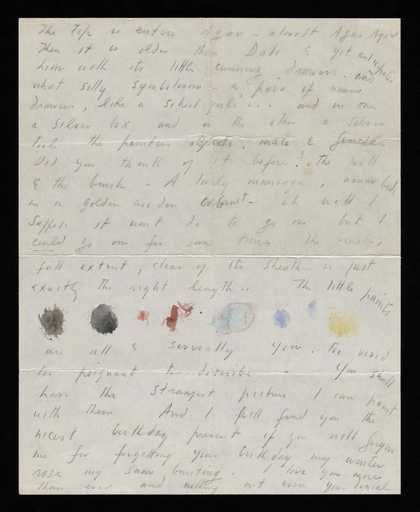 The is almost
Then it is older than & yet
him with its little cunning drawers - and
what silly symbolism - a pair of
drawers, like a school girls ... and in one
a silver box and in the other a silver
tool the painters objects, male & female
Did you think of it before? the well
& the brush - A
in a golden wooden cabinet - Oh well I
suppose it wont do to go on but I
could go on for some time. The
full extent, clear of its sheath is just
exactly the right length.. The little paints
are all & severally you. too
too poignant to describe - You shall
have the strangest picture I can paint
with them And I still you the
nicest birthday present if you will forgive
me for forgetting your birthday my winter
rose my snow bunting. I love you more
than ever and nothing not even your denial